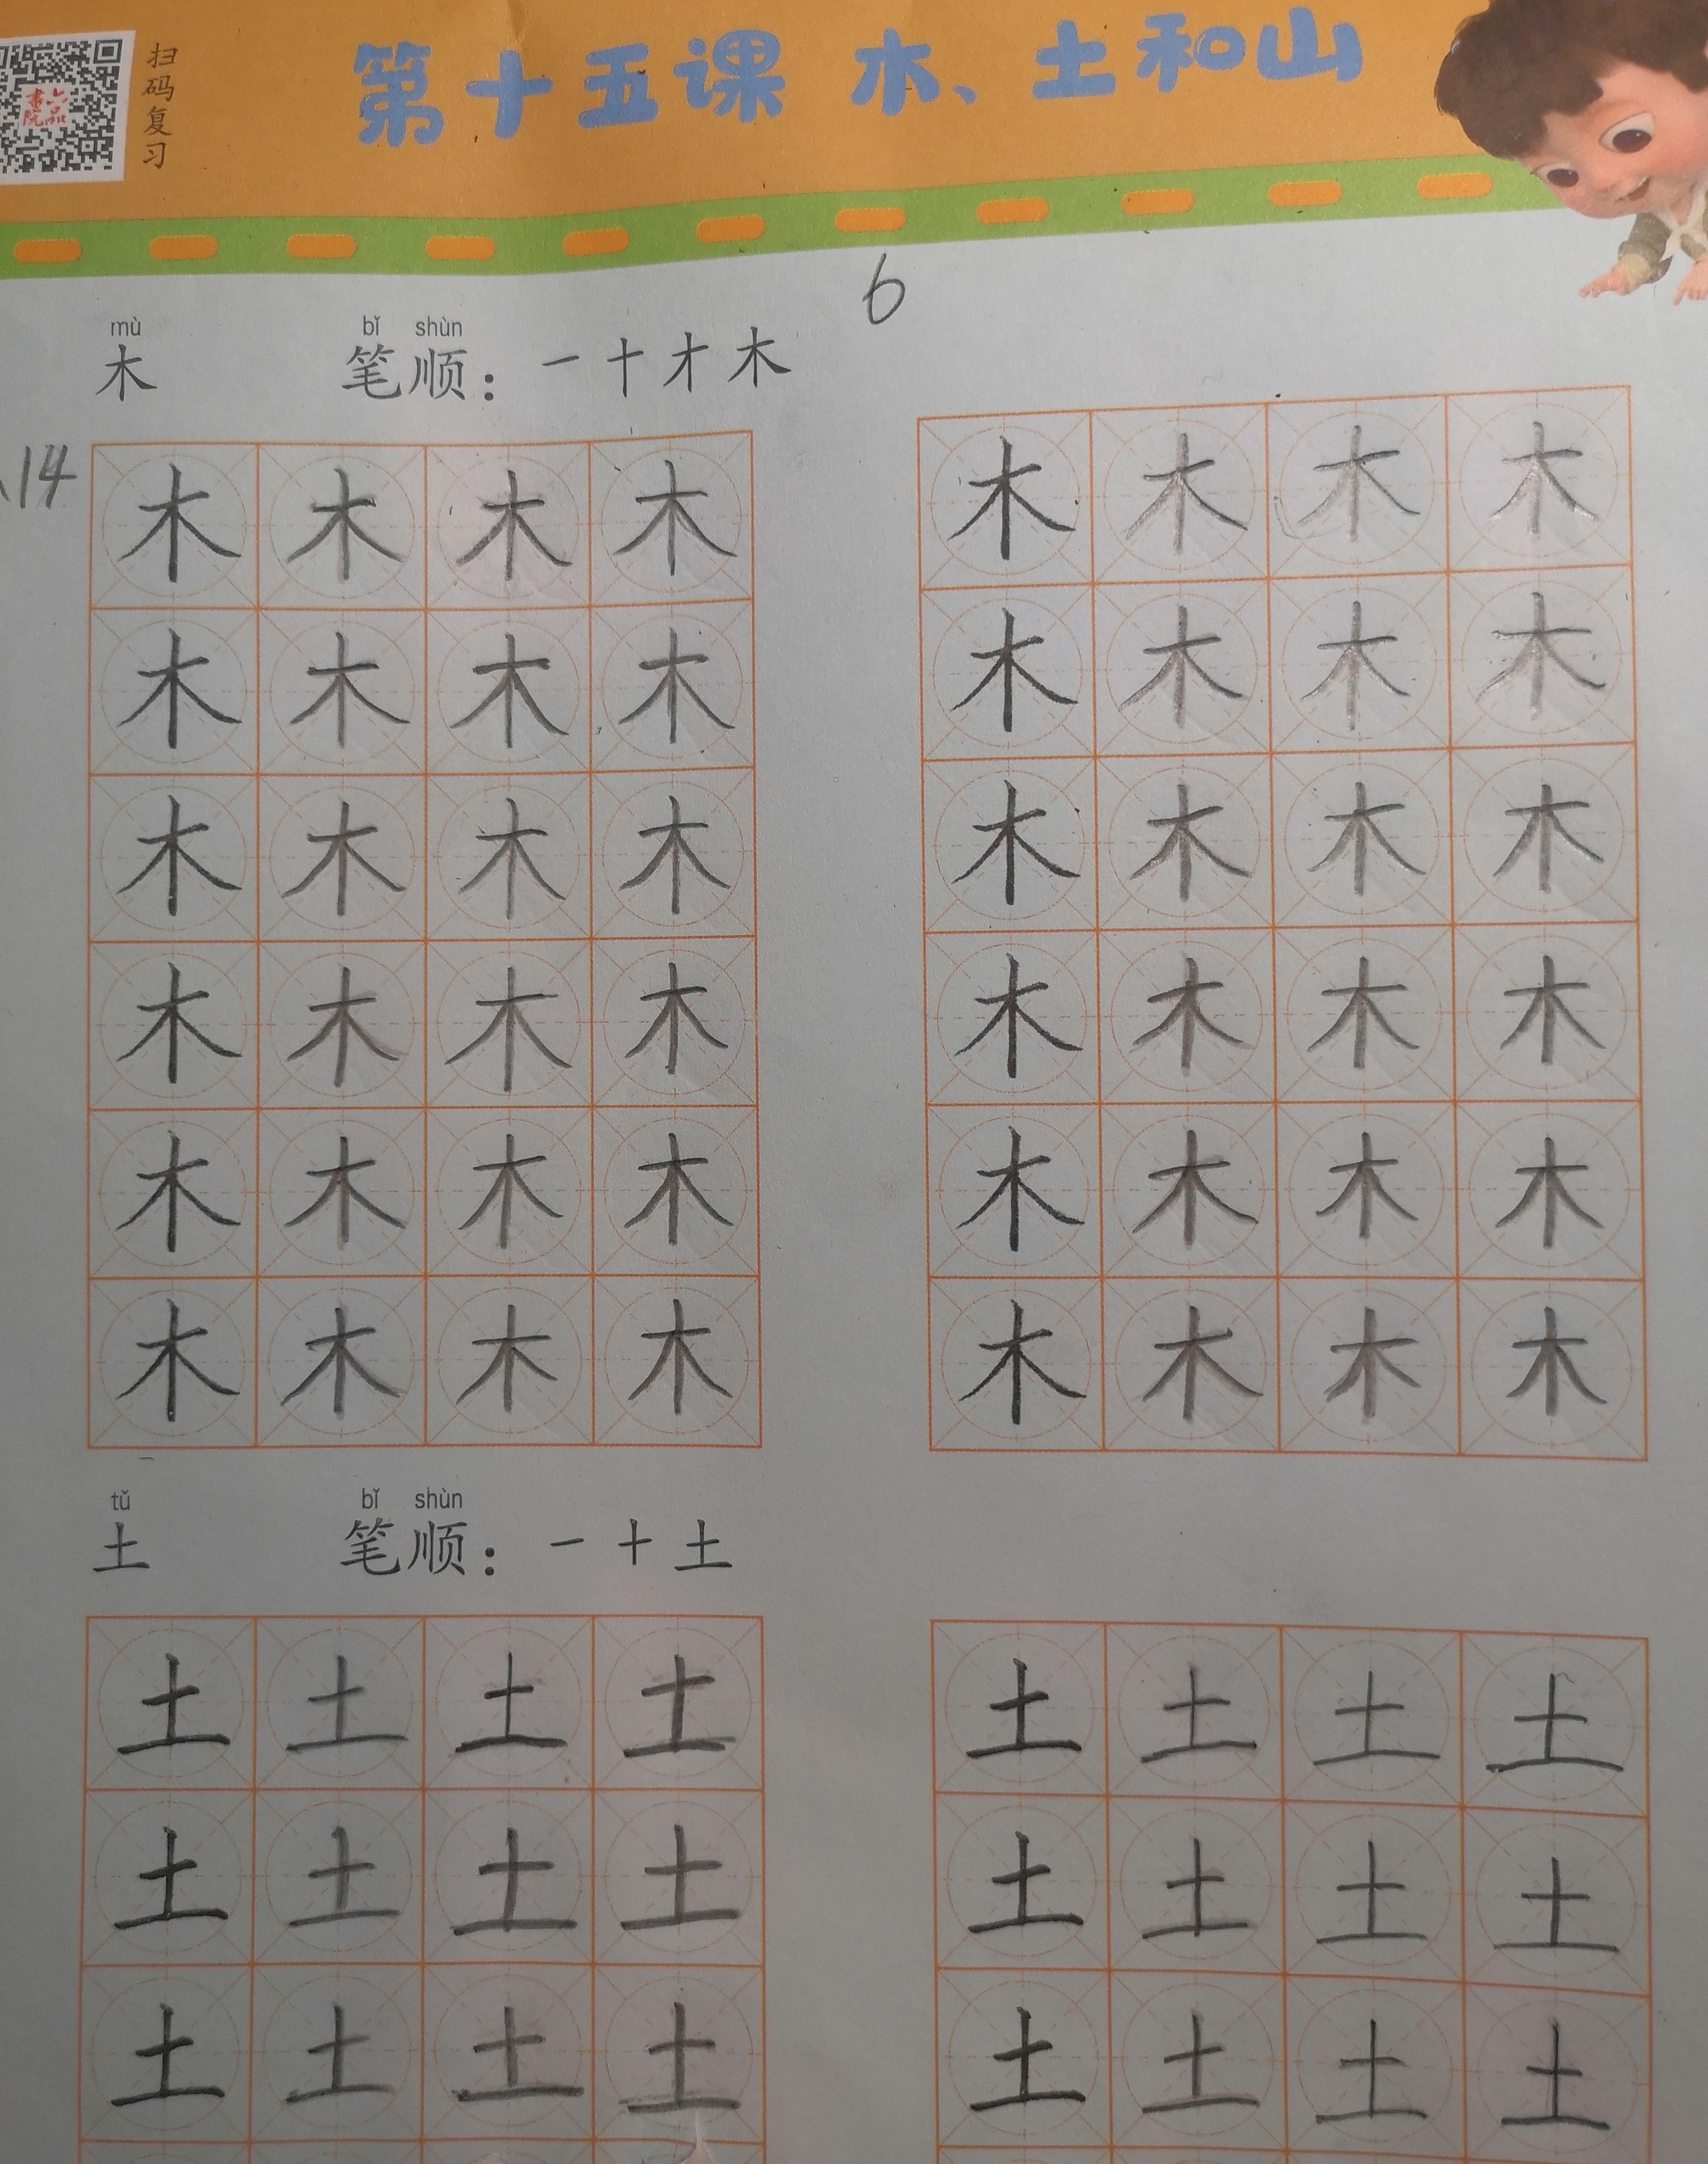 扫码复习
六品書院
第十五课 木、土和山
6
mù bǐ shùn
木 笔顺：一 十 才 木
14
木 木 木 木 木 木 木 木
木 木 木 木 木 木 木 木
木 木 木 木 木 木 木 木
木 木 木 木 木 木 木 木
木 木 木 木 木 木 木 木
木 木 木 木 木 木 木 木
tǔ bǐ shùn
土 笔顺：一 十 土
土 土 土 土 土 土 土 土
土 土 土 土 土 土 土 土
土 土 土 土 土 土 土 土